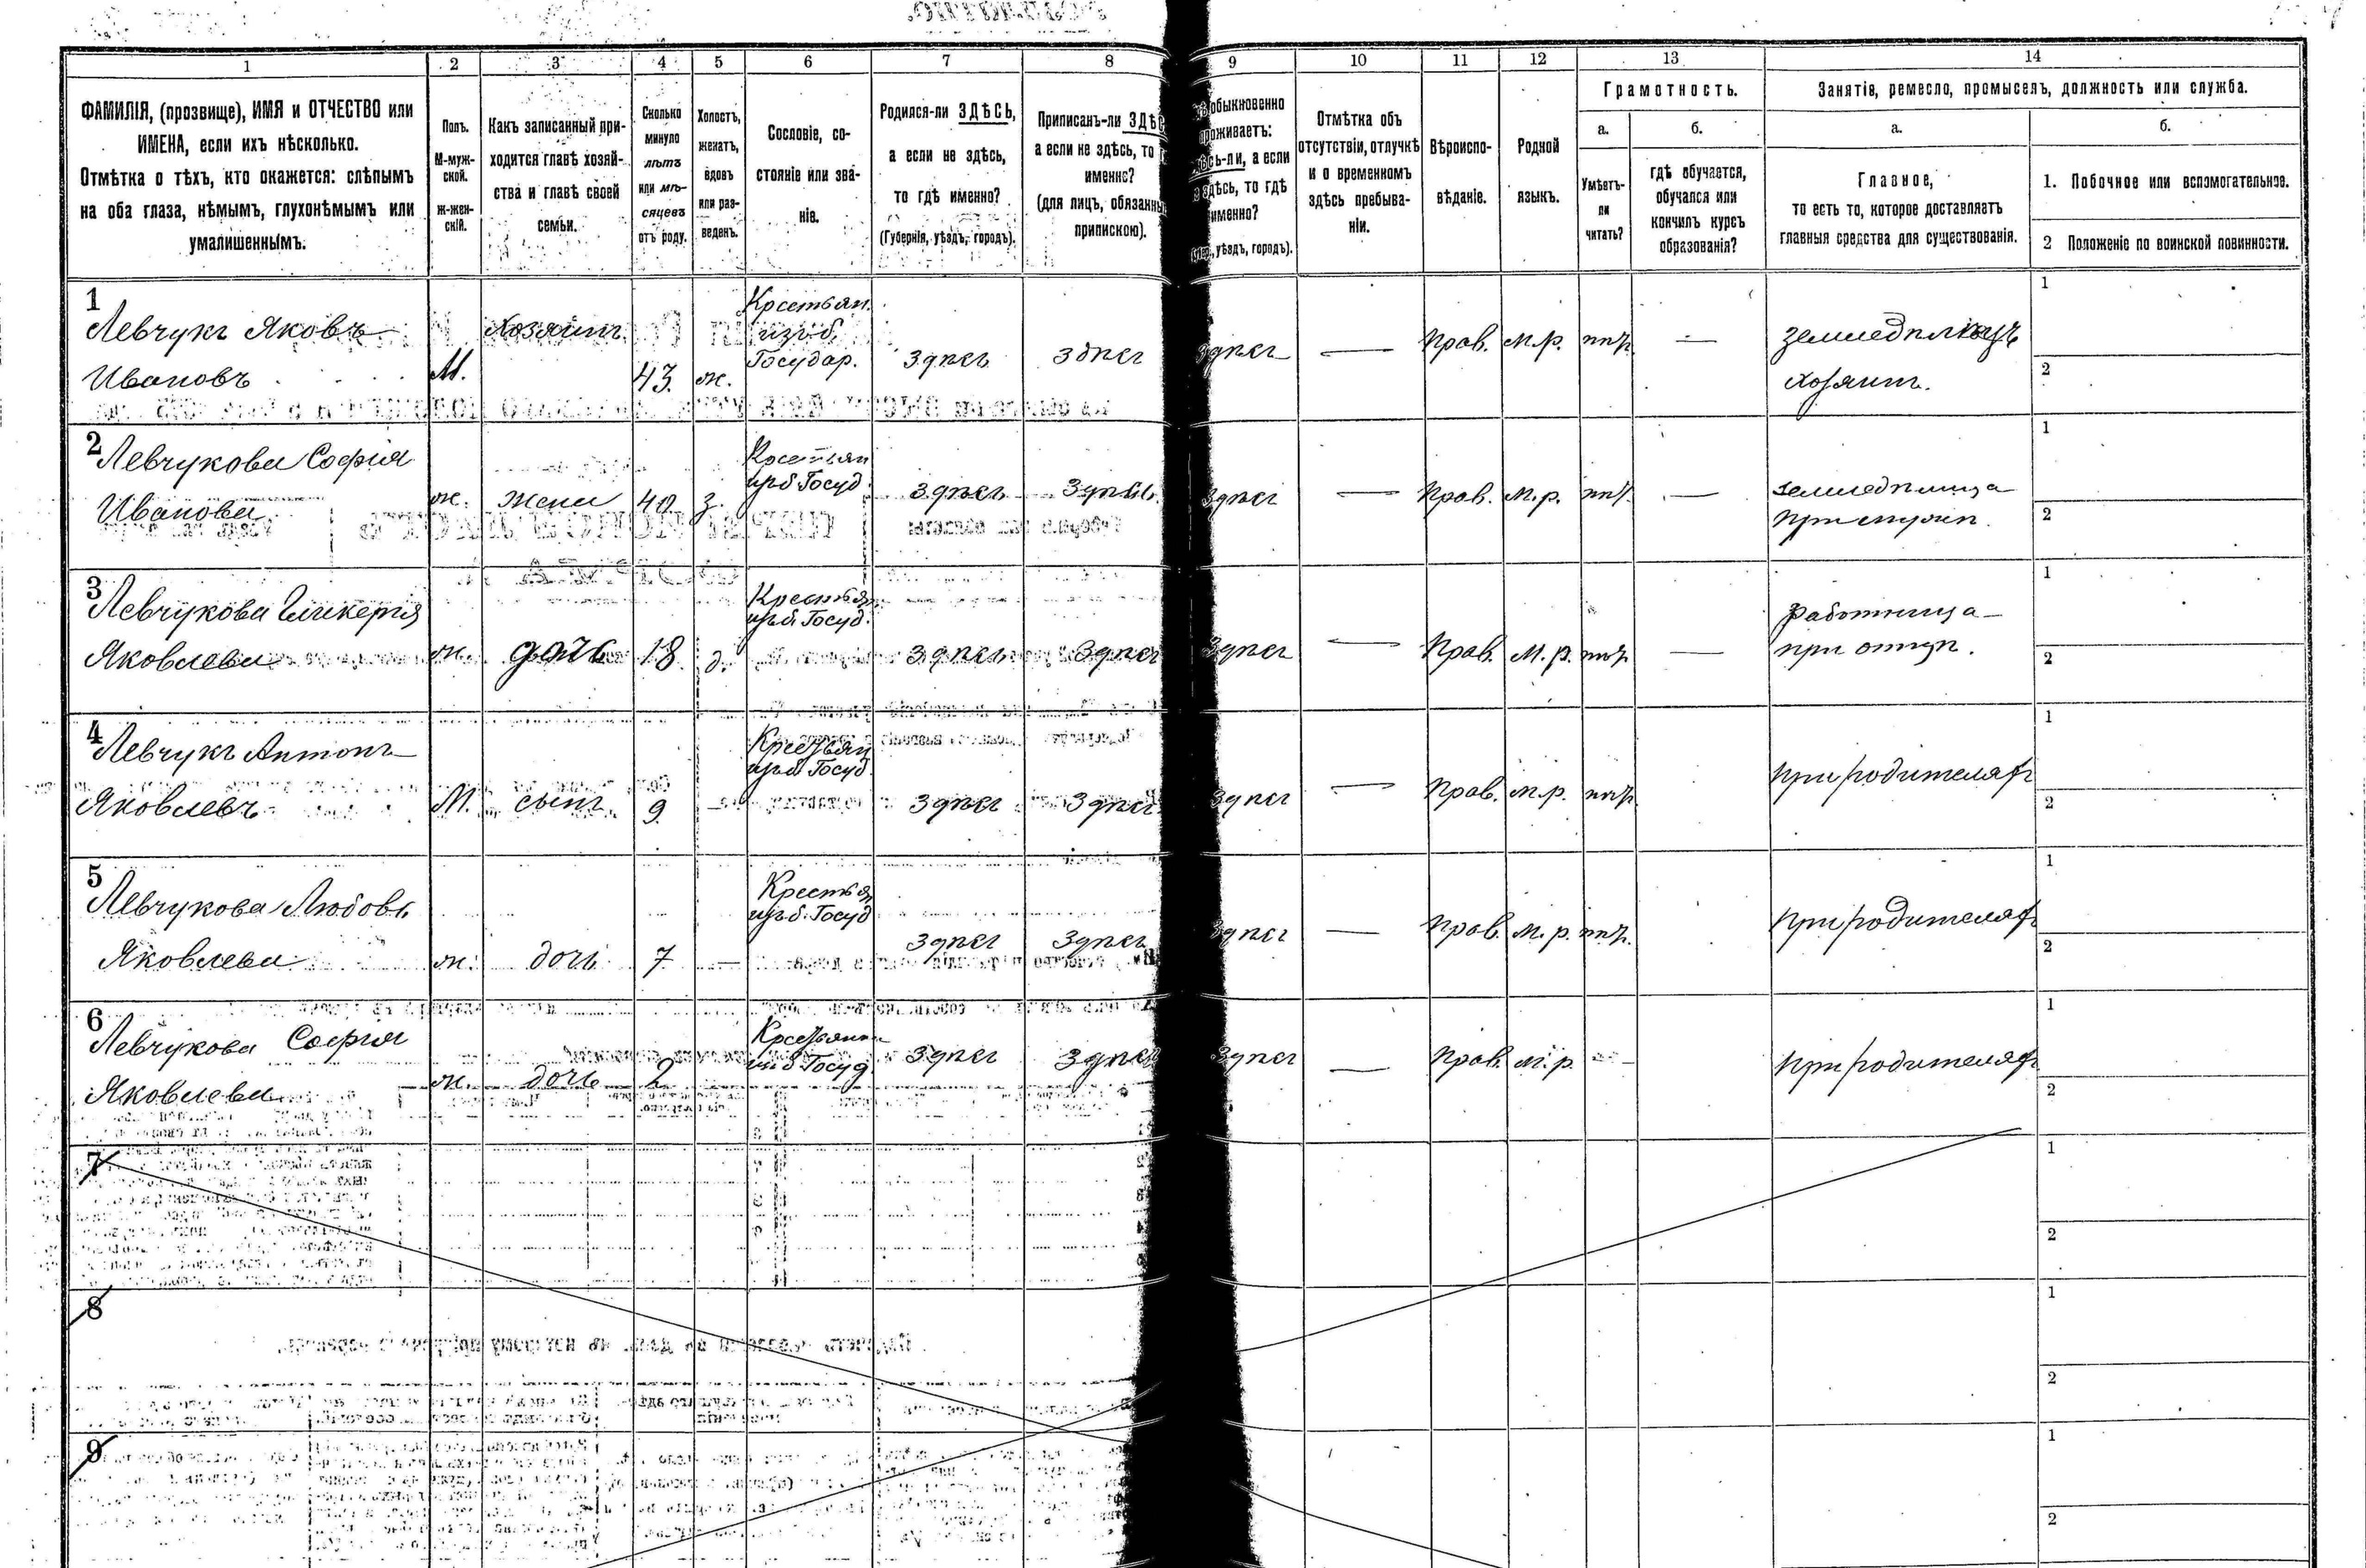 1 2 3 4 5 6 7 8 9 10 11 12 13 14
ФАМИЛІЯ, (прозвище), ИМЯ и ОТЧЕСТВО или
ИМЕНА, если ихъ нѣсколько.
Отмѣтка о тѣхъ, кто окажется: слѣпымъ
на оба глаза, нѣмымъ, глухонѣмымъ или
умалишеннымъ.
Полъ.
М-муж-
ской.
ж-жен-
скій.
Какъ записанный при-
ходится главѣ хозяй-
ства и главѣ своей
семьи.
Сколько
минуло
лѣтъ
или мѣ-
сяцевъ
отъ роду.
Холостъ,
женатъ,
вдовъ
или раз-
веденъ.
Сословіе, со-
стояніе или зва-
ніе.
Родился-ли ЗДѢСЬ,
а если не здѣсь,
то гдѣ именно?
(Губернія, уѣздъ, городъ).
Приписанъ-ли ЗДѢ
а если не здѣсь, то
именно?
(для лицъ, обязанны
припискою).
обыкновенно
роживаетъ:
сь-ли, а если
здѣсь, то гдѣ
именно?
уѣздъ, городъ).
Отмѣтка объ
отсутствіи, отлучкѣ
и о временномъ
здѣсь пребыва-
ніи.
Вѣроиспо-
вѣданіе.
Родной
языкъ.
Грамотность.
а.
Умѣетъ-
ли
читать?
б.
гдѣ обучается,
обучался или
кончилъ курсъ
образованія?
Занятіе, ремесло, промыселъ, должность или служба.
а.
Главное,
то есть то, которое доставляетъ
главныя средства для существованія.
б.
1. Побочное или вспомогательное.
2 Положеніе по воинской повинности.
1
Левчукъ Яковъ
Ивановъ
М.
Хозяинъ
43.
ж.
Крестьян.
изъ б.
Государ.
Здѣсь
Здѣсь
Здѣсь
—
Прав.
М.р.
нѣт
—
земледѣлецъ
хозяинъ.
1
2
2
Левчукова София
Иванова
ж.
жена
40
з.
Крестьян
изъ б. Госуд.
Здѣсь
Здѣсь
Здѣсь
—
Прав.
М.р.
нѣт.
—
земледѣлица
при мужѣ.
1
2
3
Левчукова Гликерия
Яковлева
ж.
дочь
18
д.
Крестья
изъ б. Госуд.
Здѣсь
Здѣсь
Здѣсь
—
Прав.
М.р.
нѣт
—
работница
при отцѣ.
1
2
4
Левчукъ Антонъ
Яковлевъ
М.
сынъ
9
—
Крестьян
изъ б. Госуд.
Здѣсь
Здѣсь
Здѣсь
—
Прав.
М.р.
нѣт
при родителях
1
2
5
Левчукова Любовь
Яковлева
ж.
дочь
7
—
Крестья
изъ б. Госуд
Здѣсь
Здѣсь
Здѣсь
—
Прав.
М.р.
нѣт.
при родителях
1
2
6
Левчукова София
Яковлева
ж.
дочь
2
Крестьянка
изъ б. Госуд
Здѣсь
Здѣсь
Здѣсь
—
Прав.
М.р.
—
при родителях
1
2
7
1
2
8
1
2
9
1
2